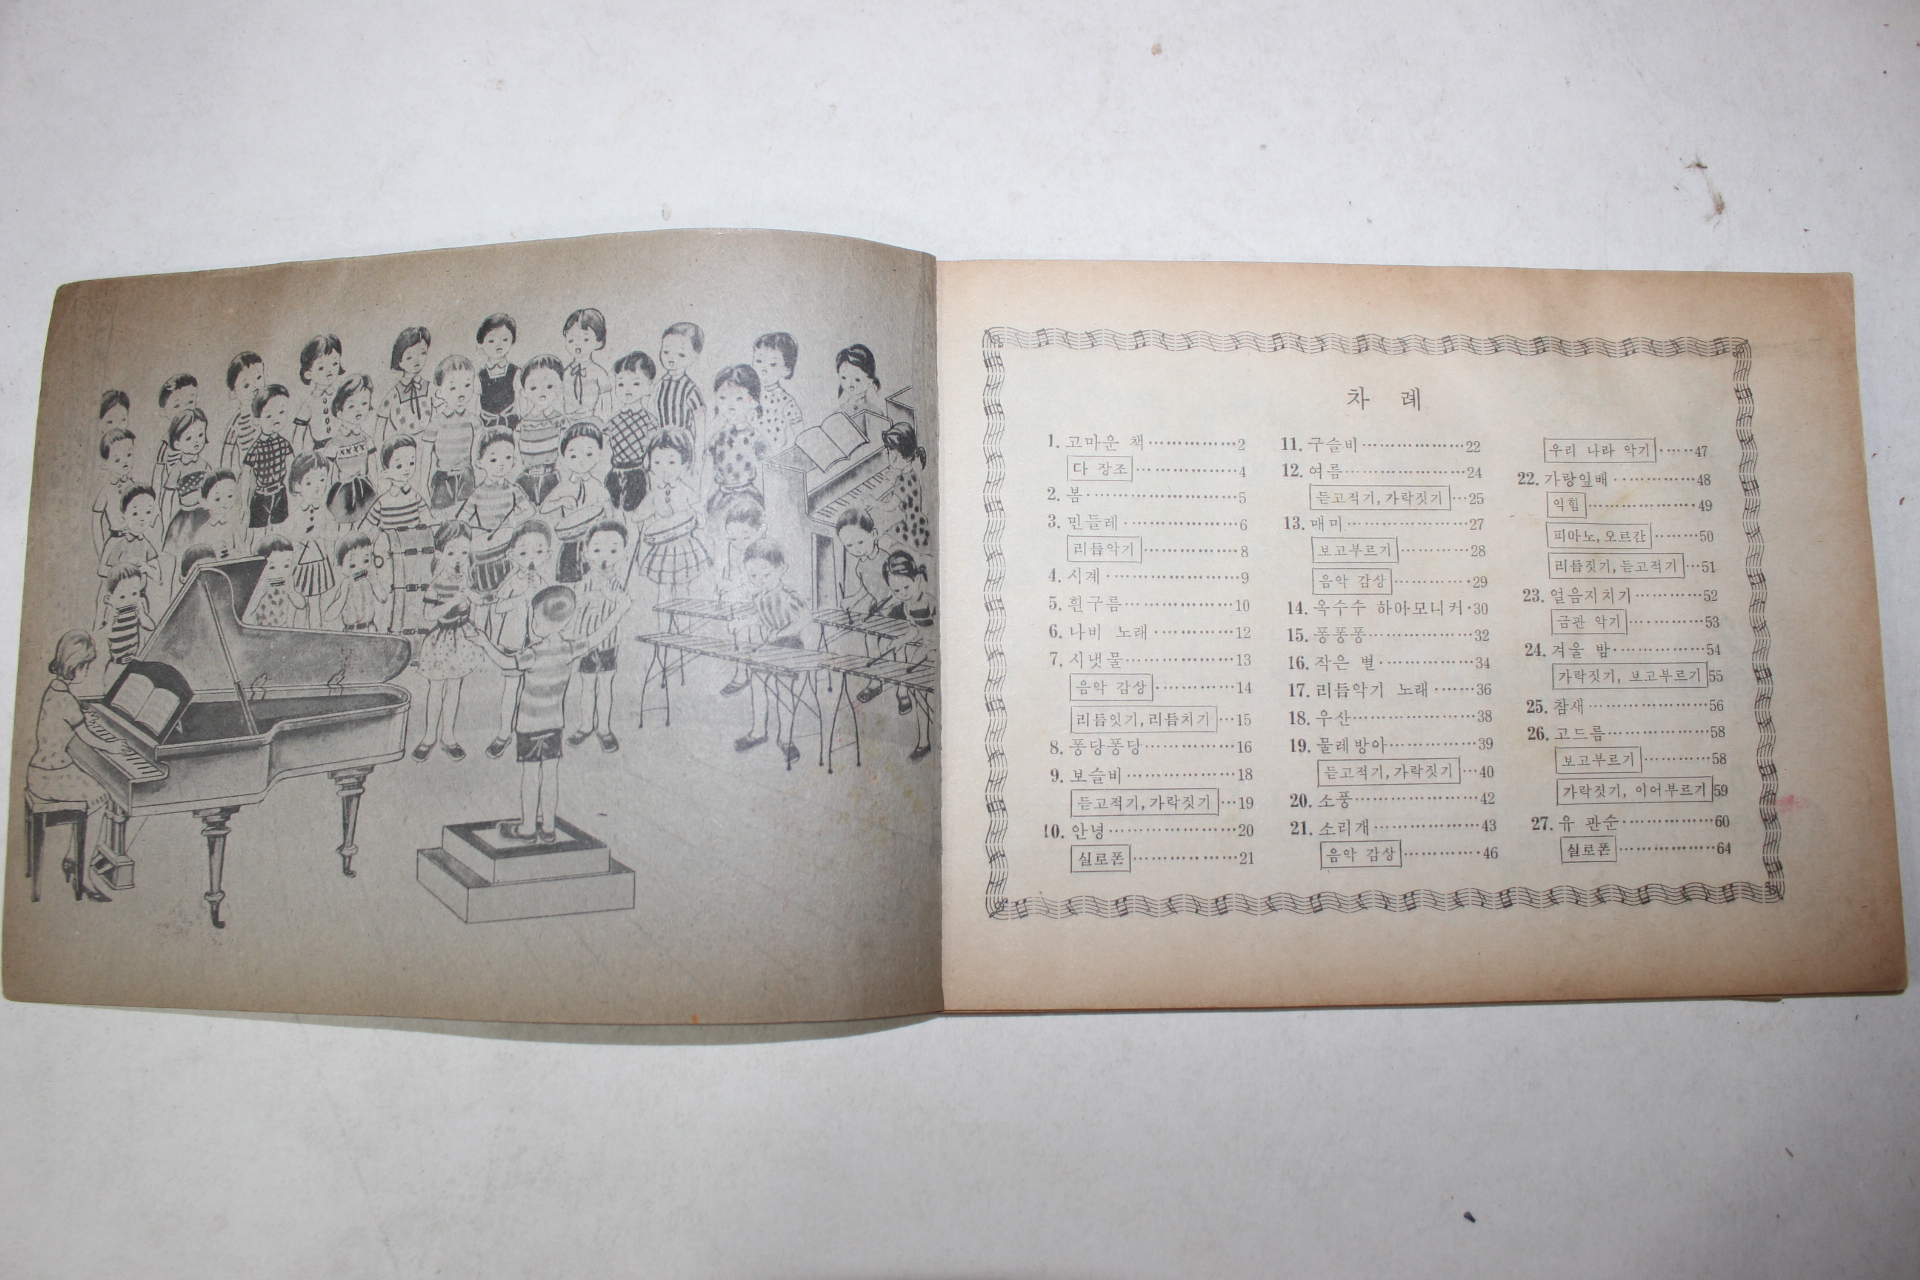 차 례
1. 고마운 책 ……………… 2
다 장조 ……………… 4
2. 봄 ……………… 5
3. 민들레 ……………… 6
리듬악기 ……………… 8
4. 시계 ……………… 9
5. 흰구름 ……………… 10
6. 나비 노래 ……………… 12
7. 시냇물 ……………… 13
음악 감상 ……………… 14
리듬잇기, 리듬치기 … 15
8. 퐁당퐁당 ……………… 16
9. 보슬비 ……………… 18
듣고적기, 가락짓기 … 19
10. 안녕 ……………… 20
실로폰 ……………… 21
11. 구슬비 ……………… 22
12. 여름 ……………… 24
듣고적기, 가락짓기 … 25
13. 매미 ……………… 27
보고부르기 ……………… 28
음악 감상 ……………… 29
14. 옥수수 하아모니커 · 30
15. 퐁퐁퐁 ……………… 32
16. 작은 별 ……………… 34
17. 리듬악기 노래 ……… 36
18. 우산 ……………… 38
19. 물레방아 ……………… 39
듣고적기, 가락짓기 … 40
20. 소풍 ……………… 42
21. 소리개 ……………… 43
음악 감상 ……………… 46
우리 나라 악기 …… 47
22. 가랑잎배 ……………… 48
익힘 ……………… 49
피아노, 오르간 ……… 50
리듬짓기, 듣고적기 … 51
23. 얼음지치기 ………… 52
금관 악기 ………… 53
24. 겨울 밤 ……………… 54
가락짓기, 보고부르기 55
25. 참새 ……………… 56
26. 고드름 ……………… 58
보고부르기 ………… 58
가락짓기, 이어부르기 59
27. 유 관순 ……………… 60
실로폰 ……………… 64